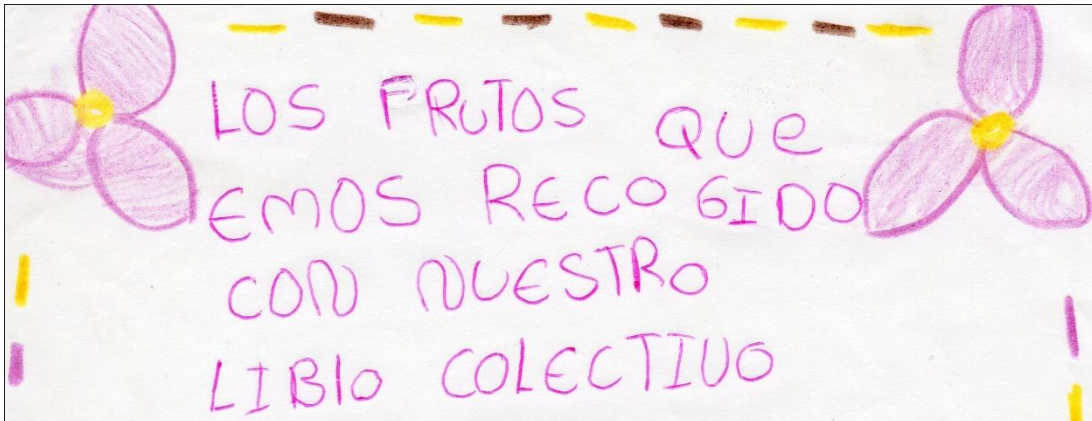 LOS FRUTOS QUe
EMOS RECOGIDO
CON NUESTRO
LIBIO COLECTIVO